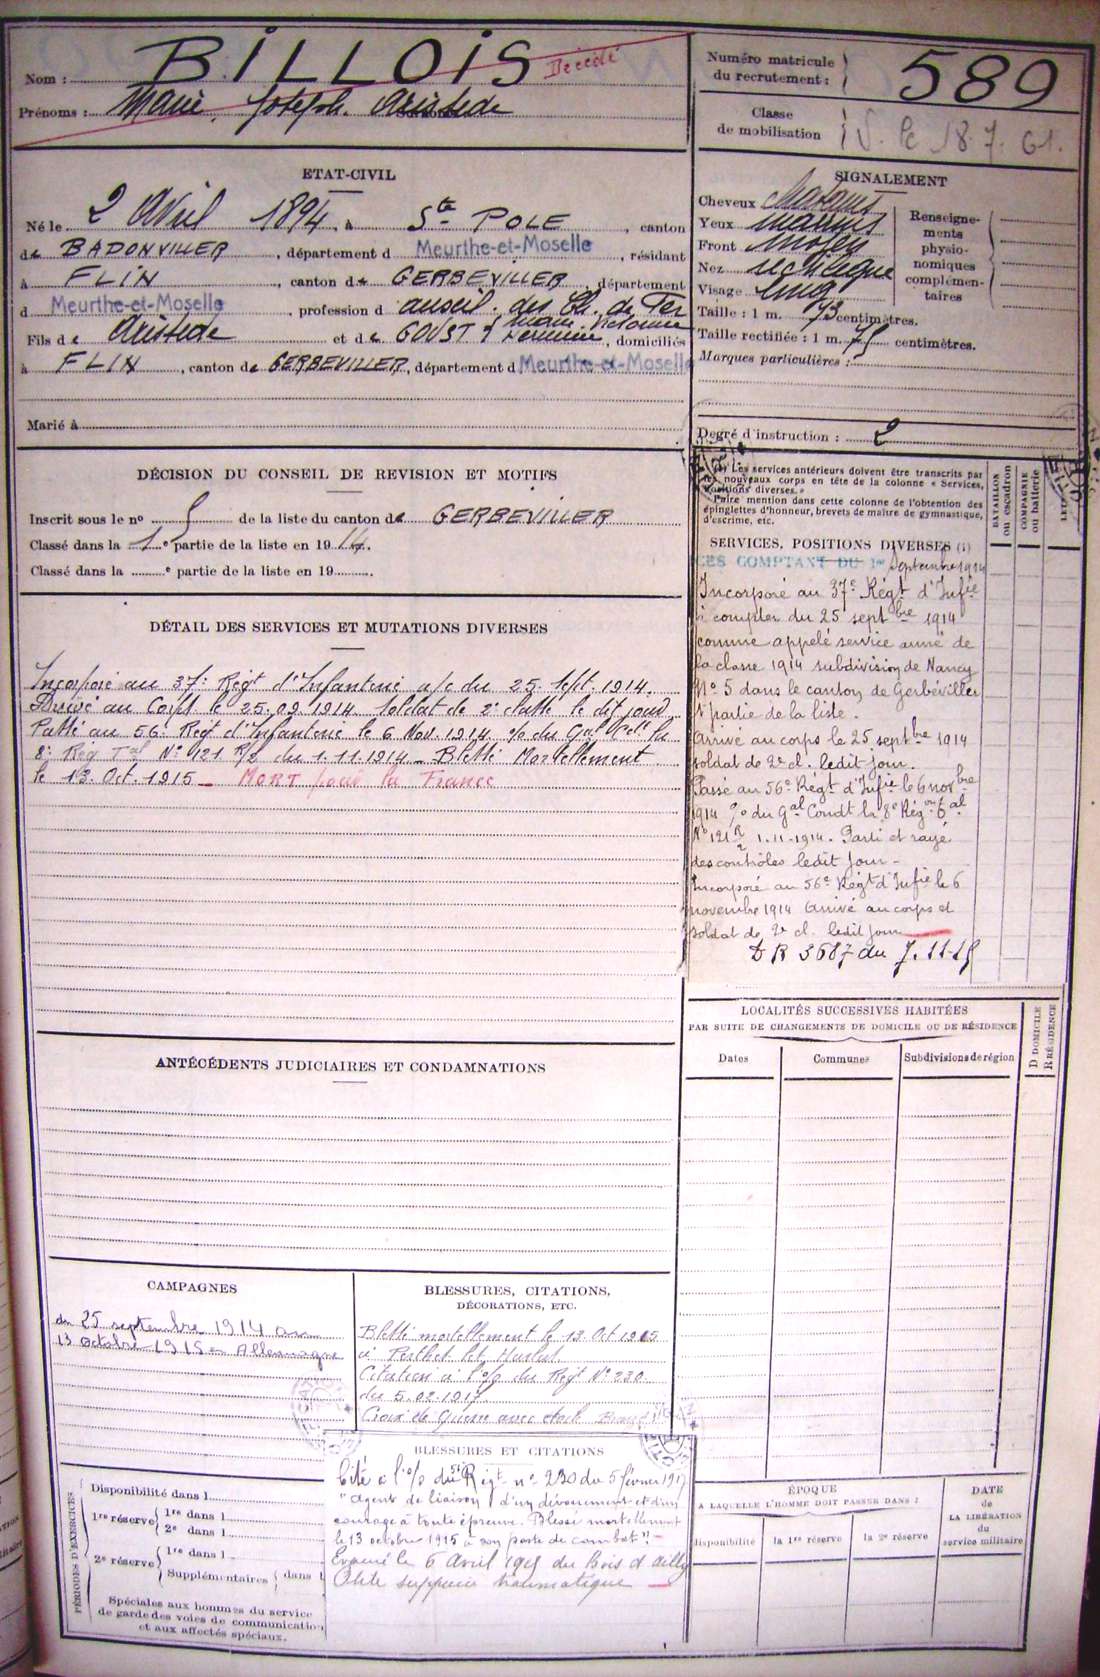 Nom : BILLOIS Décédé
Prénoms : Marie, Joseph, Aristide
Numéro matricule
du recrutement :
589
Classe
de mobilisation
18.7.61.
ETAT-CIVIL
Né le 2 Avril 1894, à Ste POLE, canton
de BADONVILLER, département d Meurthe-et-Moselle, résidant
à FLIN, canton de GERBEVILLER, département
d Meurthe-et-Moselle, profession d des Ch. de Fer
Fils de Aristide et de GOUST Marie Victorine
, domiciliés
à FLIN, canton de GERBEVILLER, département d Meurthe-et-Moselle
Marié à
SIGNALEMENT
Cheveux châtains
Yeux marrons
Front moyen
Nez rectiligne
Visage long
Renseigne-
ments
physio-
nomiques
complémen-
taires
Taille : 1 m. 73 centimètres.
Taille rectifiée : 1 m. 75 centimètres.
Marques particulières :
Degré d'instruction : 2
DÉCISION DU CONSEIL DE REVISION ET MOTIFS
Inscrit sous le no 5 de la liste du canton de GERBEVILLER
Classé dans la 1e partie de la liste en 1914.
Classé dans la e partie de la liste en 19 .
DÉTAIL DES SERVICES ET MUTATIONS DIVERSES
Incorporé au 37e Régt d'Infanterie a/c du 25. Sept. 1914.
Arrivé au Corps le 25.09.1914 Soldat de 2e classe le dit jour.
Passé au 56e Régt d'Infanterie le 6 Nov. 1914 o/o du Gal Cdt la
8e Rég Tal No 121 R/2 du 1.11.1914_ Blessé Mortellement
le 13. Oct. 1915_ MORT pour la France
(1) Les services antérieurs doivent être transcrits par
les nouveaux corps en tête de la colonne « Services,
positions diverses. »
Faire mention dans cette colonne de l'obtention des
épinglettes d'honneur, brevets de maître de gymnastique,
d'escrime, etc.
BATAILLON
ou escadron
COMPAGNIE
ou batterie
SERVICES, POSITIONS DIVERSES (1)
CES COMPTANT DU 1er Septembre 1914
Incorporé au 37e Régt d'Infie
à compter du 25 septbre 1914
comme appelé service armé de
la classe 1914 subdivision de Nancy
No 5 dans le canton de Gerbéviller
1e partie de la liste.
Arrivé au corps le 25 septbre 1914
soldat de 2e cl. ledit jour.
Passé au 56e Régt d'Infie le 6 novbre
1914 o/o du Gal Comdt la 8e Région Tal
No 121 R/2 1.11.1914. Parti et rayé
des contrôles ledit jour_
Incorporé au 56e Régt d'Infie le 6
novembre 1914 Arrivé au corps et
soldat de 2e cl. ledit jour
D R 3687 du 7.11.15
ANTÉCÉDENTS JUDICIAIRES ET CONDAMNATIONS
LOCALITÉS SUCCESSIVES HABITÉES
PAR SUITE DE CHANGEMENTS DE DOMICILE OU DE RÉSIDENCE
Dates
Communes
Subdivisions de région
D DOMICILE
R RÉSIDENCE
CAMPAGNES
du 25 septembre 1914 au
13 octobre 1915 en Allemagne
BLESSURES, CITATIONS,
DÉCORATIONS, ETC.
Blessé mortellement le 13 Oct 1915
à Perthes les Hurlus
Citation à l'o/o du Régt No 230.
du 5.02.1917
Croix de Guerre avec étoile Bronze
BLESSURES ET CITATIONS
Cité à l'o/o du Régt no 230 du 5 février 1917
"agent de liaison d'un dévouement et d'un
courage à toute épreuve. Blessé mortellement
le 13 octobre 1915 à son poste de combat"_
Evacué le 6 Avril 1915 du Bois d'Ailly
Otite suppurée traumatique
PÉRIODES D'EXERCICES
Disponibilité dans l
1re réserve
1re dans l
2e dans l
2e réserve
1re dans l
Supplémentaires dans l
Spéciales aux hommes du service
de garde des voies de communication
et aux affectés spéciaux.
ÉPOQUE
A LAQUELLE L'HOMME DOIT PASSER DANS :
disponibilité
la 1re réserve
la 2e réserve
DATE
de
LA LIBÉRATION
du
service militaire